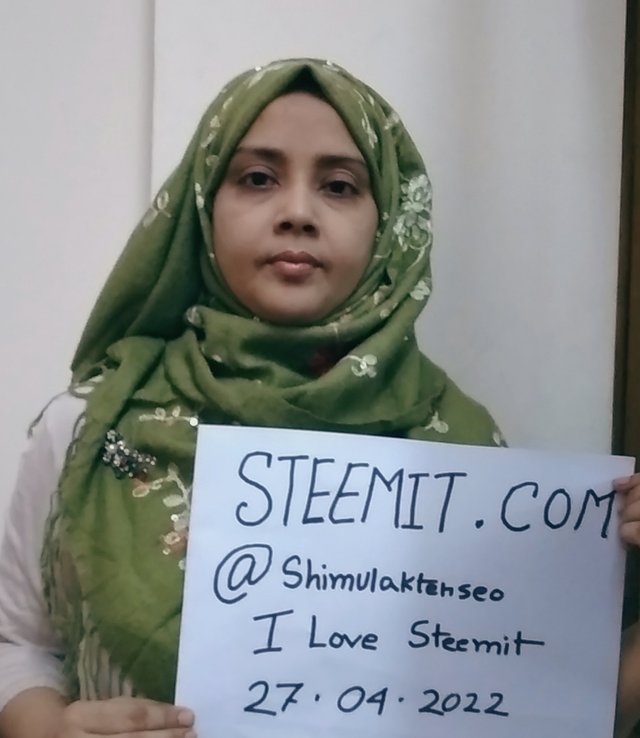 STEEMIT.COM
@Shimulaktenseo
I Love Steemit
27.04.2022